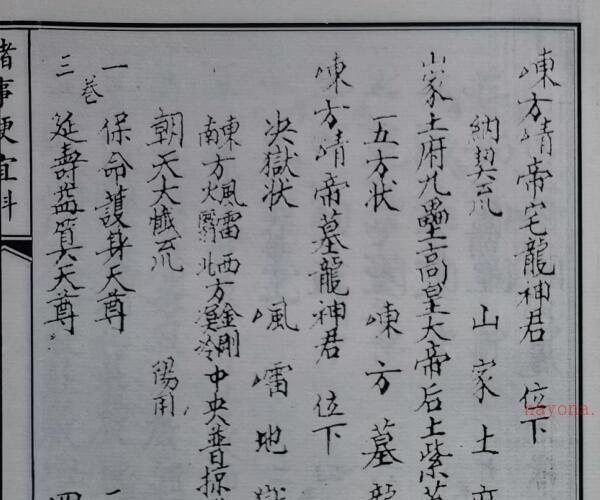 㖦方靖帝宅龍神君 位下
納契疏 山家土府
山家土府九壘土高皇大帝后土紫英
五方状 㖦方墓龍
㖦方靖帝墓龍神君 位下
决獄状 㖦雷地獄
東方風雷 西方金剛 中央普掠
南方火翳 北方溟泠
朝天大懺疏 陽用
一 保命護身天尊
卷
三 延壽益算天尊 四
諸事便宜科
nayona.